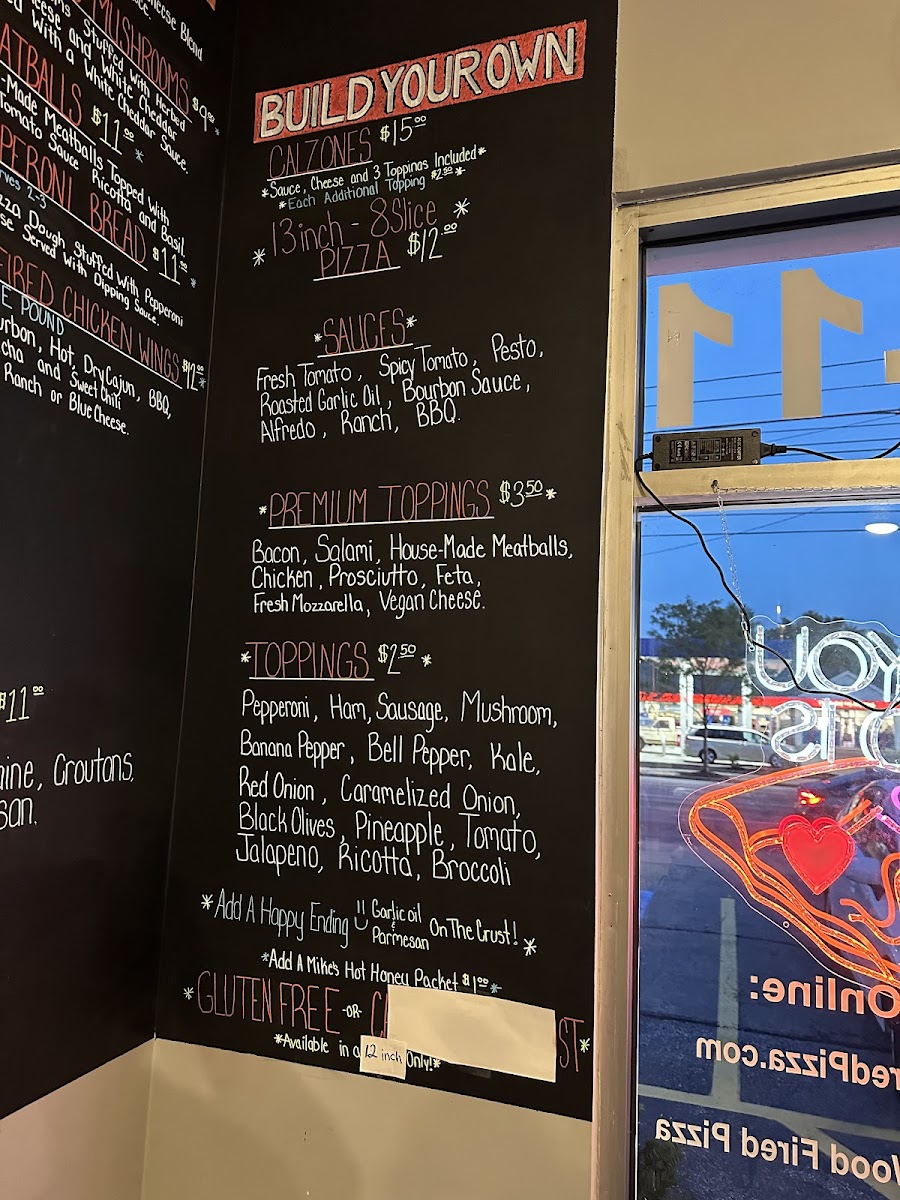 Cheese Blend
MUSHROOMS $9⁰⁰
Stuffed With Herbed
Cheese and White Cheddar
With a White Cheddar Sauce.
$11⁰⁰ *
Made Meatballs Topped With
Tomato Sauce Ricotta and Basil.
BREAD $11⁰⁰ *
2-3
Dough Stuffed With Pepperoni
Served With Dipping Sauce.
CHICKEN WINGS $12⁰⁰ *
POUND
Hot, Dry Cajun, BBQ,
and Sweet Chili
Ranch or Blue Cheese.
$11⁰⁰
Croutons,
BUILD YOUR OWN
CALZONES $15⁰⁰
*Sauce, Cheese and 3 Toppings Included*
*Each Additional Topping $2.50*
* 13inch - 8 Slice *
PIZZA $12⁰⁰
*SAUCES*
Fresh Tomato, Spicy Tomato, Pesto,
Roasted Garlic Oil, Bourbon Sauce,
Alfredo, Ranch, BBQ.
*PREMIUM TOPPINGS $3⁵⁰*
Bacon, Salami, House-Made Meatballs,
Chicken, Prosciutto, Feta,
Fresh Mozzarella, Vegan Cheese.
*TOPPINGS $2⁵⁰ *
Pepperoni, Ham, Sausage, Mushroom,
Banana Pepper, Bell Pepper, Kale,
Red Onion, Caramelized Onion,
Black Olives, Pineapple, Tomato,
Jalapeno, Ricotta, Broccoli
*Add A Happy Ending Garlic oil & Parmesan On The Crust! *
*Add A Mike's Hot Honey Packet $1⁰⁰*
* GLUTEN FREE -OR-
*Available in a 12 inch Only!*
11-
YOU
Online:
redPizza.com
Wood Fired Pizza